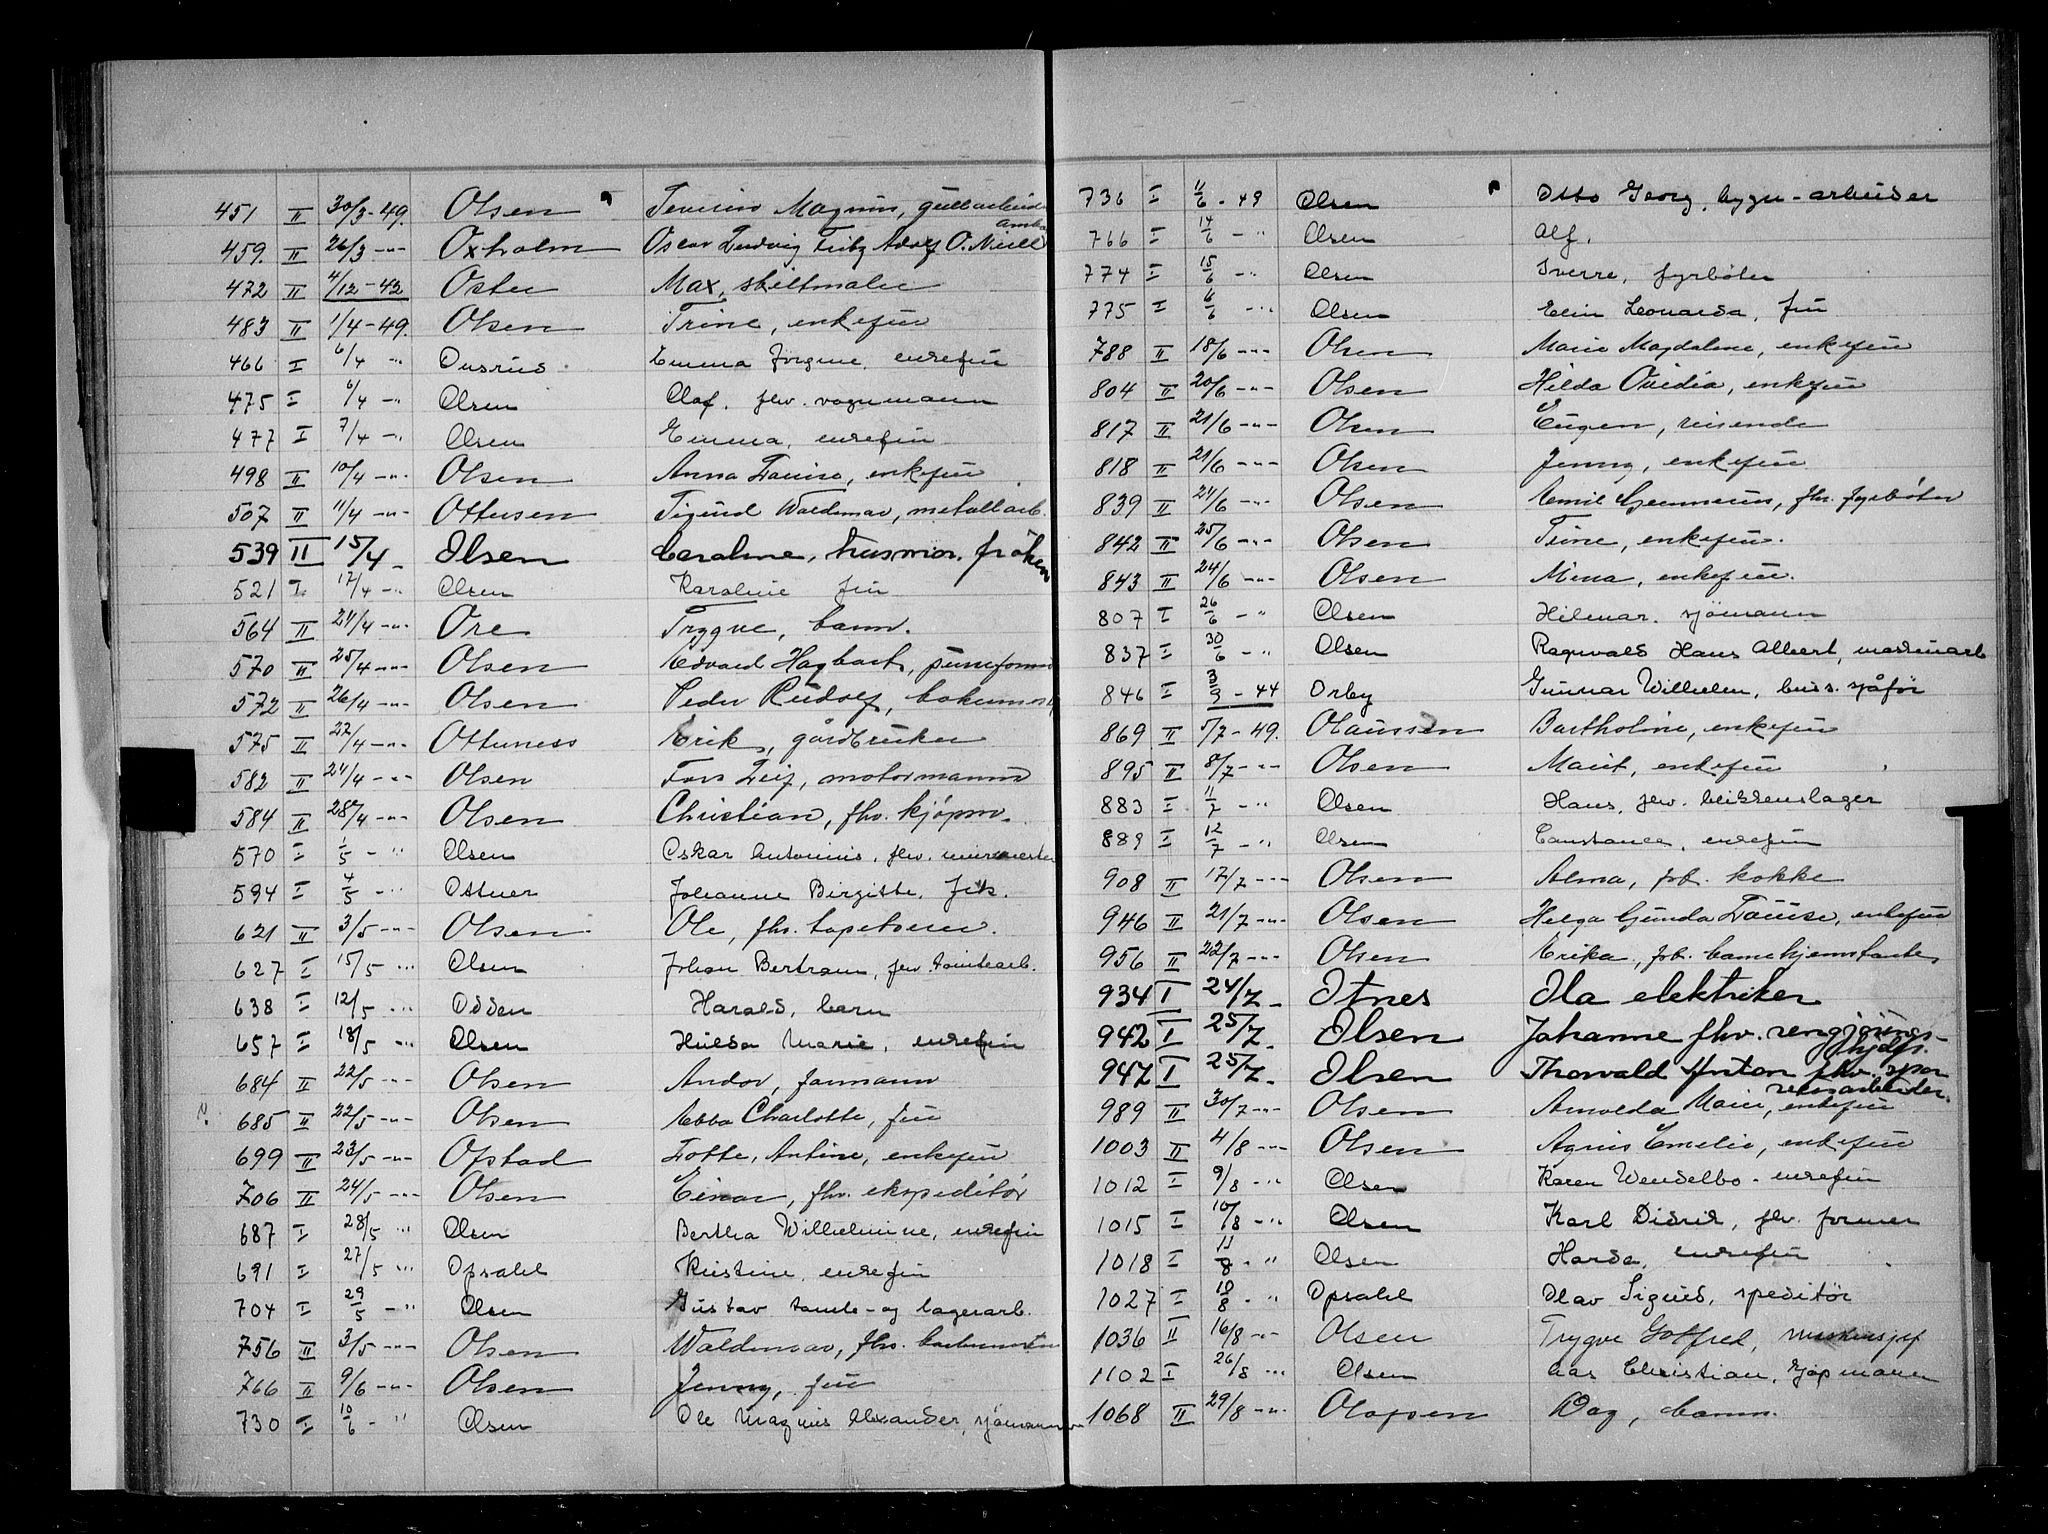 451 II 30/3-49. Olsen Severin Magnus, gullarbeider
459. II 26/3 -"- Oxholm Oscar Ludvig Fritz Adolf O. Neill amba
472 II 4/12-42 Oster Max, skiltmaler
483 II 1/4-49. Olsen Trine, enkefru
466 I 6/4 -"- Onsrud Emma Jørgine, enkefru
475 I 6/4 -"- Olsen Olaf, fhv. vognmann
477 I 7/4 -"- Olsen Emma, enkefru
498 II 10/4 -"- Olsen Anna Louise, enkefru
507 II 11/4 -"- Ottersen Sigurd Waldemar, metallarb.
539 II 15/4 - Olsen Caroline, husmor. frøken
521 I 17/4 -"- Olsen Karoline fru
564 II 24/4 -"- Ore Trygve, barn.
570 II 25/4 -"- Olsen Edvard Hagbart,
572 II 26/4 -"- Olsen Peder Rudolf,
575 II 27/4 -"- Otterness Erik, gårdbruker
582 II 24/4 -"- Olsen Tors Leif, motormann
584 II 28/4 -"- Olsen Christian, fhv. kjøpm.
570 I 1/5 - " Olsen Oskar Antonius, fhv. murmester
594 I 4/5 - " Ottner Johanne Birgitte, frk.
621 II 3/5 -"- Olsen Ole, fhv. tapetserer.
627 I 15/5 -"- Olsen Johan Bertram, fhv. tomtearb.
638 I 12/5 -"- Odden Harald, barn
657 I 18/5 -"- Olsen Hulda Marie, enkefru
684 II 22/5 -"- Olsen Andor, formann
685 II 22/5 -"- Olsen Ebba Charlotte, fru
699 II 23/5 -"- Opstad Lotte, Antine, enkefru
706 II 24/5 -"- Olsen Einar, fhv. ekspeditør
687 I 28/5 " Olsen Bertha Wilhelmine, enkefru
691 I 27/5 " Opsahl Kristine, enkefru
704 I 29/5 - " Olsen Gustav tomte- og lagerarb.
756 II 3/5 -"- Olsen Waldemar, fhv.
766 II 9/6 -"- Olsen Jenny, fru
730 I 10/6 - " Olsen Ole Magnus Alexander, sjømann
736 I 11/6 - 49 Olsen Otto Georg, bygn-arbeider
766 I 14/6 - " Olsen Alf.
774 I 15/6 - " Olsen Sverre, fyrbøter
775 I 6/6 - " Olsen Elin Leonarda, fru
788 II 18/6 -"- Olsen Marie Magdalene, enkefru
804 II 20/6 -"- Olsen Hilda Ovidia, enkefru
817 II 21/6 -"- Olsen Eugen, reisende
818 II 21/6 -"- Olsen Jenny, enkefru
839 II 24/6 -"- Olsen Emil Gunnerius, fhv. fyrbøter
842 II 25/6 -"- Olsen Trine, enkefru.
843 II 24/6 -"- Olsen Mina, enkefru.
807 I 26/6 - " Olsen Hilmar. sjömann
837 I 30/6 - " Olsen Ragnvald Hans Albert, maskinarb
846 I 3/9 - 44 Orby Gunnar Wilhelm, buss. sjåfør
869 II 5/7 - 49. Olaussen Bartholine, enkefru
895 II 8/7 -"- Olsen Marit, enkefru
883 I 11/7 - " Olsen Hans, fhv. blikkenslager
889 I 12/7 - " Olsen Constance, enkefru
908 II 17/7 -"- Olsen Alma, frk. kokke
946 II 21/7 -"- Olsen Helga Gunda Louise, enkefru
956 II 22/7 -"- Olsen Erika, frk. barnehjemstante
934 I 24/7 - Otnes Ola elektriker
942 I 25/7 - Olsen Johanne fhv. rengjørings-hjelp.
947 I 25/7 - Olsen Thorvald Anton fhv. spor veisarbeider.
989 II 30/7 -"- Olsen Arnolda Marie, enkefru
1003 II 4/8 -"- Olsen Agnes Emelie, enkefru
1012 I 9/8 -"- Olsen Karen Wendelbo - enkefru
1015 I 10/8 - " Olsen Karl Didrik, fhv. former
1018 I 11/8 - " Olsen Harda, enkefru
1027 I 10/8 - " Opsahl Olav Sigurd, speditør
1036 II 16/8 -"- Olsen Trygve Gotfred,
1102 I 26/8 -"- Olsen Lars Christian, kjøpmann
1068 II 29/8 -"- Olafsen Dag, barn.